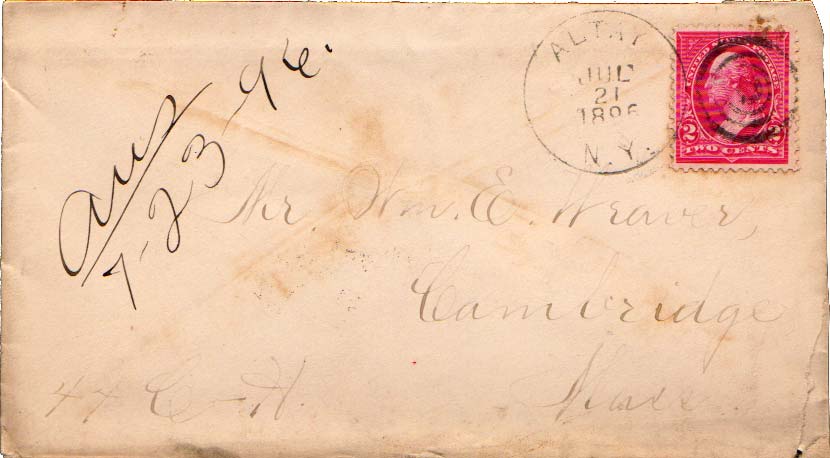 ALTAY
JUL
21
1896
N. Y.
UNITED STATES POSTAGE
2 2
TWO CENTS
ans
7-23-96.
Mr. Wm. E. Weaver,
Cambridge
Mass.
44 C-H.